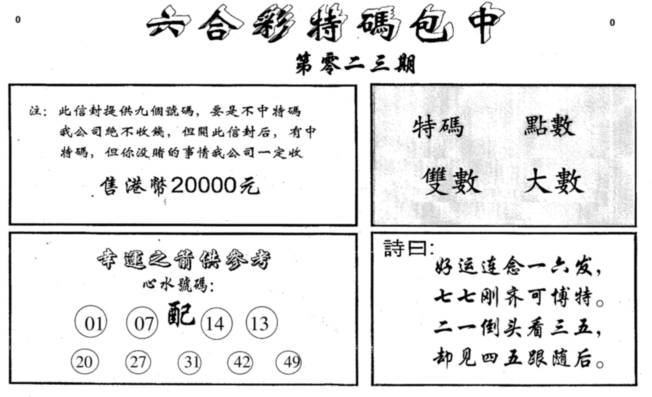 0
六合彩特碼包中
0
第零二三期
注：此信封提供九個號碼，要是不中特碼
我公司絕不收錢，但開此信封后，有中
特碼，但你没賭的事情我公司一定收
售港幣20000元
特碼 點數
雙數 大數
幸運之箭供參考
心水號碼：
01 07 配 14 13
20 27 31 42 49
詩曰：
好运连念一六发，
七七刚齐可博特。
二一倒头看三五，
却见四五跟随后。